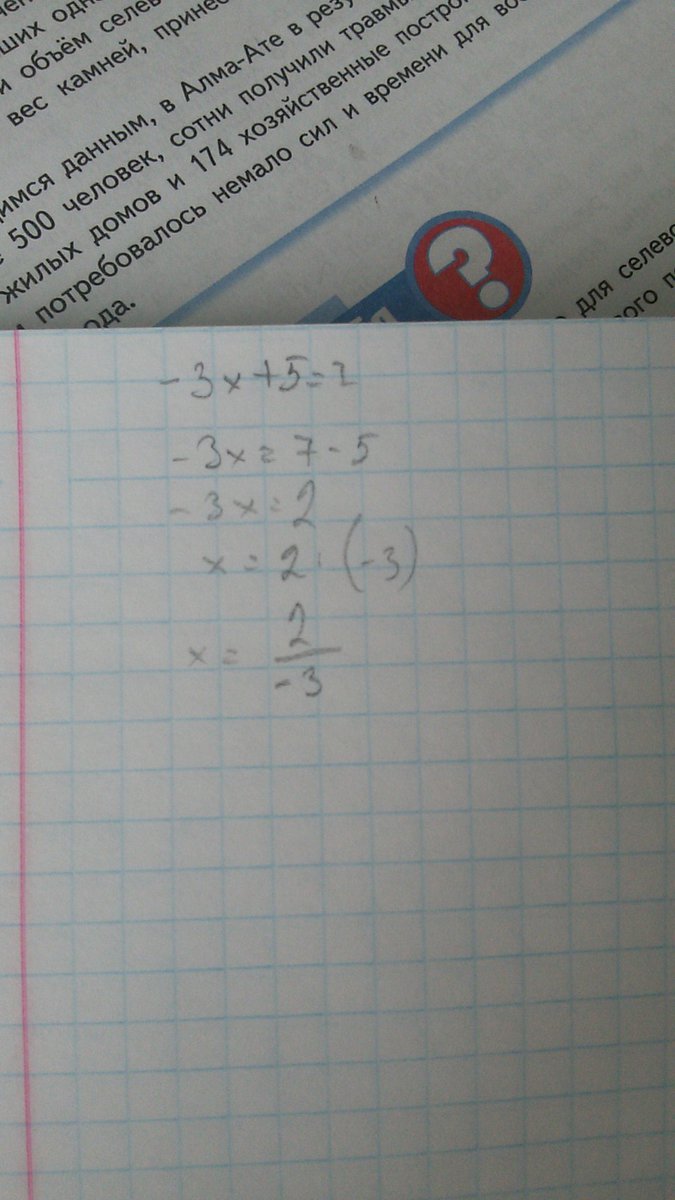 ших одн
и объём селев
вес камней, принес
имся данным, в Алма-Ате в резу
500 человек, сотни получили травмы
жилых домов и 174 хозяйственные постро
потребовалось немало сил и времени для вос
ода.
?
для селево
ого п
-3x+5=7
-3x=7-5
-3x=2
x=2:(-3)
x= 2/-3